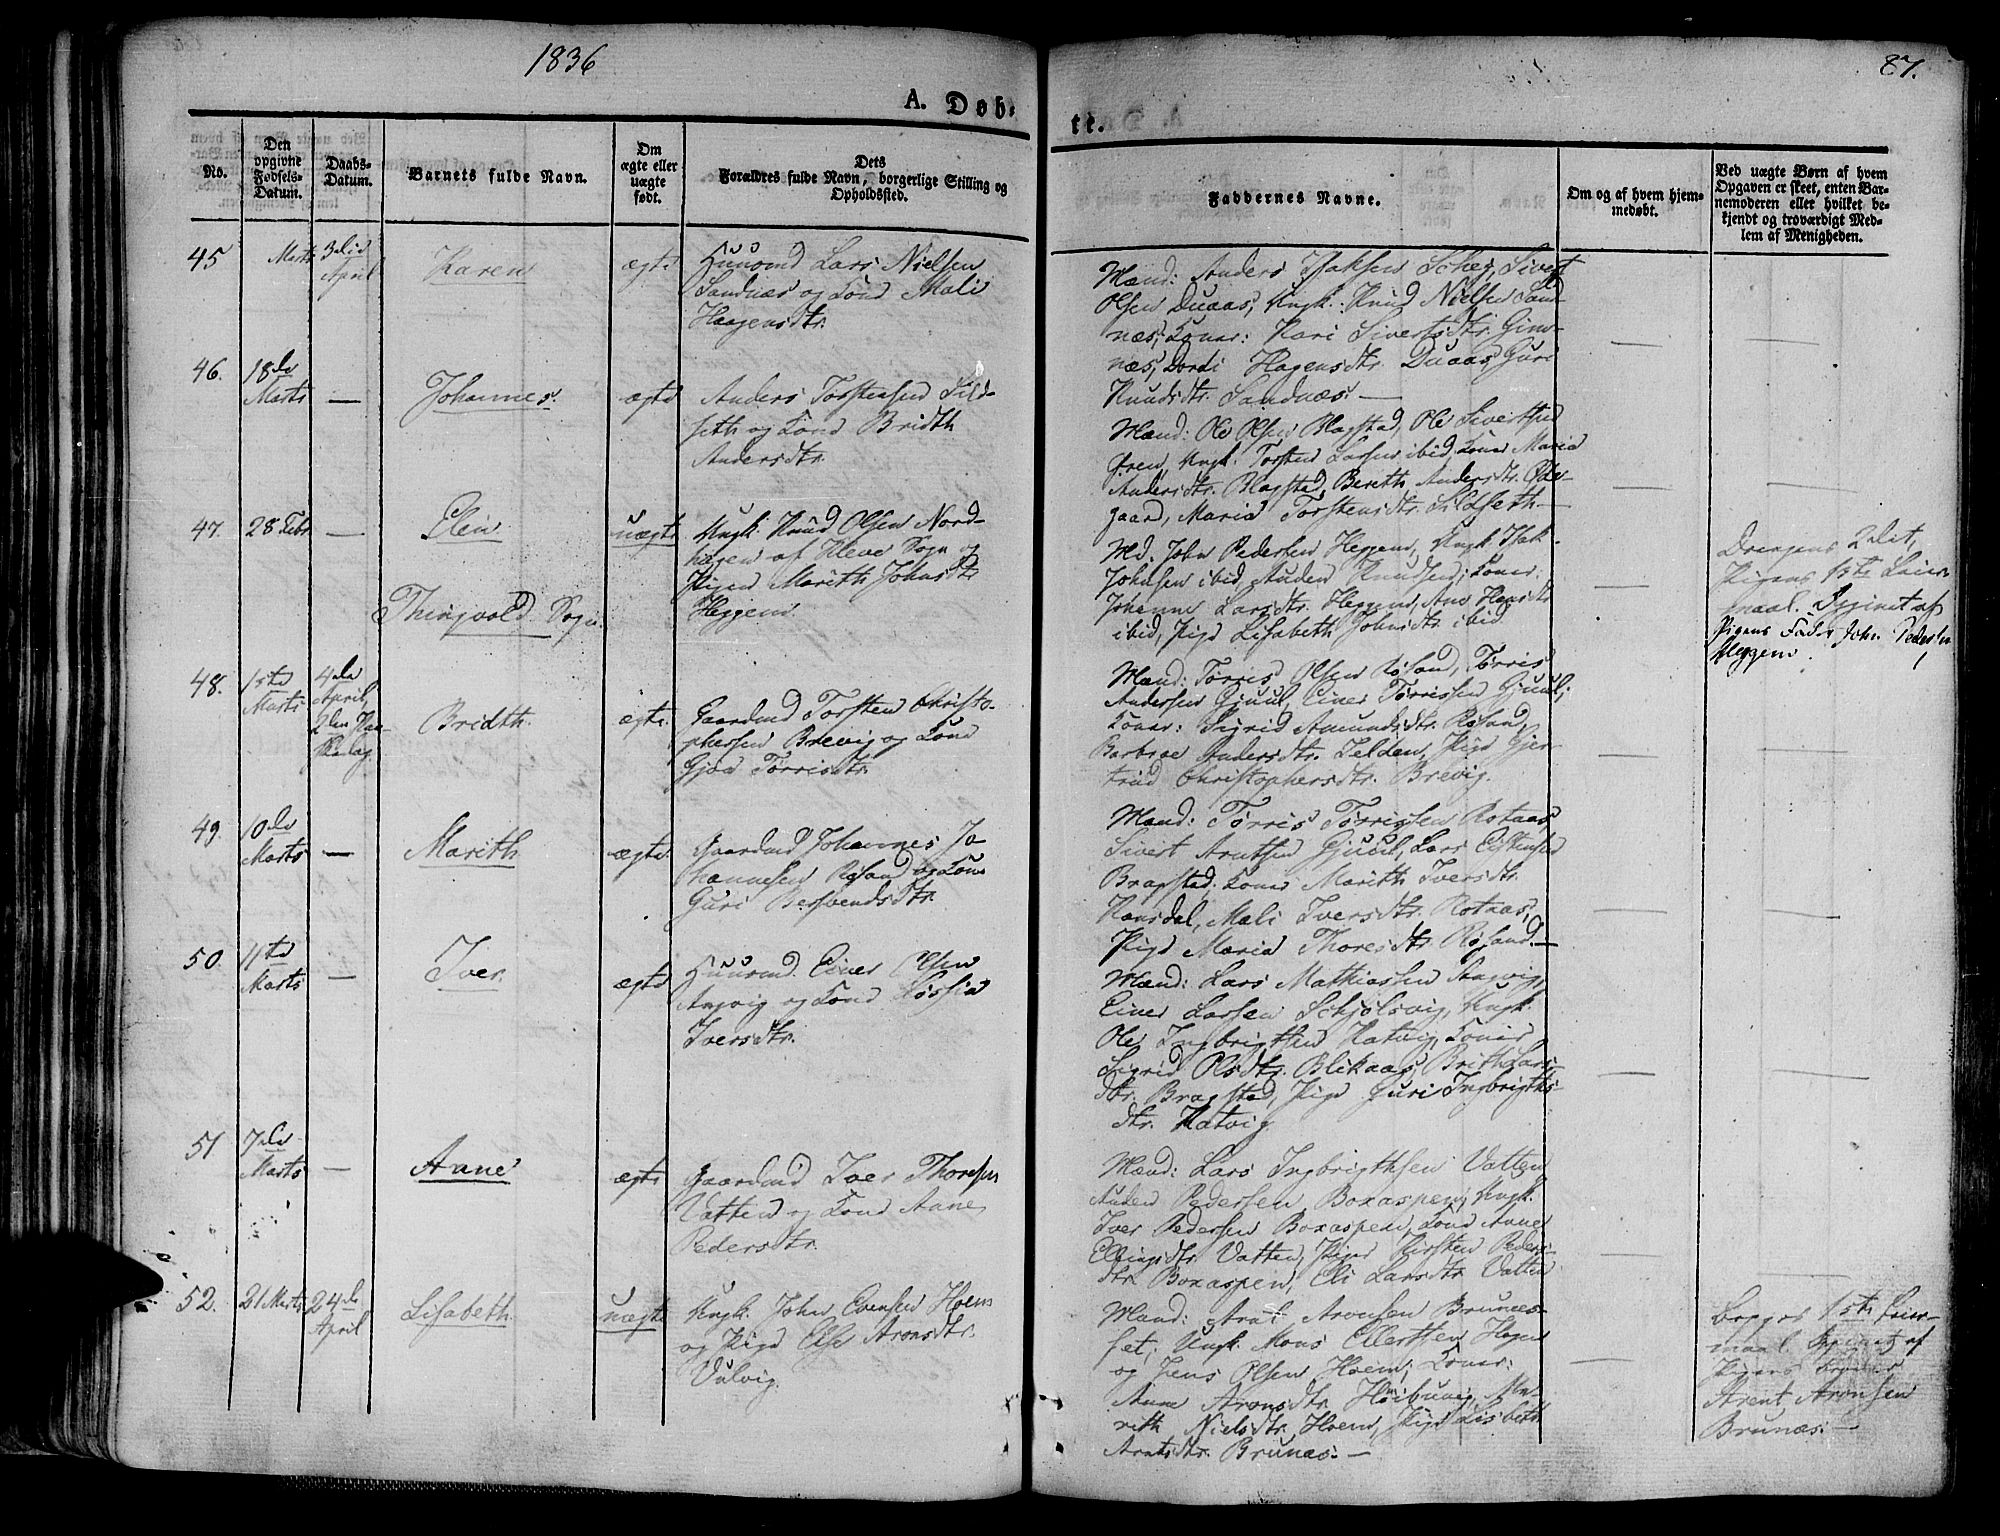 1836
87.
A. Døb-
te.
No.
Den opgivne Fødsels-Datum.
Daabs-Datum.
Barnets fulde Navn.
Om ægte eller uægte født.
Dets Forældres fulde Navn, borgerlige Stilling og Opholdssted.
Faddernes Navne.
Om og af hvem hjemmedøbt.
Ved uægte Børn af hvem Opgaven er skeet, enten Barnemoderen eller hvilket bekjendt og troværdigt Medlem af Menigheden.
45
Marts
3die
April
Karen
ægte
Huusmd Lars Nielsen
Sandnæs og Kone Mali
Haagensdtr.
Mænd: Anders Isaksen Schei, Sivert
Olsen Duaas, Ungk: Knud Nielsen Sand-
næs; Koner: Kari Sivertsdtr. Gim-
næs, Dordi Hagensdtr. Duaas, Guri
Knudsdtr. Sandnæs. —
46.
18de
Marts
—
Johannes.
ægte
Anders Torstensen Sild-
seth og Kone Bridth
Andersdtr.
Mænd: Ole Olsen Blagstad, Ole Sivertsen
Øren, Ungk. Torsten Larsen ibid, Koner Maria
Andersdtr. Blagstad, Berith Andersdtr. Øde-
gaard, Maria Torstensdtr. Sildseth —
47.
28 Febr
—
Elen
Thingvold Sogn.
uægte
Ungk. Knud Olsen Nord-
hagen af Kleve Sogn og
Pigen Marith Johnsdtr
Heggem.
Md. John Pedersen Heggem, Ungk Isak
Johnsen ibid, Auden Knudsen; Koner.
Johanne Larsdtr. Heggem, Ane Hansdtr
ibid, Pige Lisabeth Johnsdtr. ibid
Drengens 2det,
Pigens 1ste Leier
maal. Opgivet af
Pigens Fader John Pedersen
Heggem.
48.
1ste
Marts
4de
April,
2den Paa-
skedag
Bridth.
ægte.
Gaardmd Torsten Christo-
phersen Brevig og Kone
Gjøa Tørrisdtr.
Mænd: Tørris Olsen Røsand, Tørris
Andersen Gjuul, Einer Tørrissen Gjuul;
Koner: Sigrid Amundsdtr. Røsand,
Barbroe Andersdtr. Telden, Pige Gjer-
trud Christophersdtr. Brevig.
49.
10de
Marts
—
Marith
ægte.
Gaardmd Johannes Jo-
hannesen Røsand og Kone
Guri Bersvendsdtr.
Mænd: Tørris Tørrissen Rotaas,
Sivert Arntsen Gjuul, Lars Eistensen
Bragstad; Koner Marith Iversdtr.
Kansdal, Mali Iversdtr. Rotaas,
Pige Maria Thoresdtr. Røsand. —
50.
11te
Marts
—
Iver.
ægte
Huusmd. Einer Olsen
Angvig og Kone
Iversdtr.
Mænd: Lars Mathiassen Angvig,
Einer Larsen Schjølsvig, Ungk.
Ole Ingbrigtsen Hatvig, Koner
Sigrid Olsdtr. Blikaas, Brith Lars-
dtr. Bragstad, Pige Guri Ingbrigts-
dtr. Hatvig.
51
7de
Marts
—
Anne
ægte
Gaardmd Iver Thoresen
Vatten og Kone Anne
Pedersdtr.
Mænd: Lars Ingbrigthsen Vatten,
Auden Pedersen Boxaspen, Ungk.
Iver Pedersen Boxaspen, Kone Anne
Ellingsdtr. Vatten, Pige Kirsten Peders-
dtr. Boxaspen, Eli Larsdtr. Vatten
52.
21 Marts
24de
April
Lisabeth.
uægte
Ungk. John Evensen Hoem
og Pige Else Aronsdtr.
Vulvig.
Mænd: Arnt Aronsen Brunes-
set, Ungk. Mons Ellertsen Hagen
og Jens Olsen Hoem; Koner:
Anne Aronsdtr. Hambuvig, Ma-
rith Nielsdtr. Hoem, Pige Lisbeth
Arntsdtr. Brunæs. —
Begges 1ste Leier-
maal. Opgivet af
Pigens
Arent Aronsen
Brunæs. —